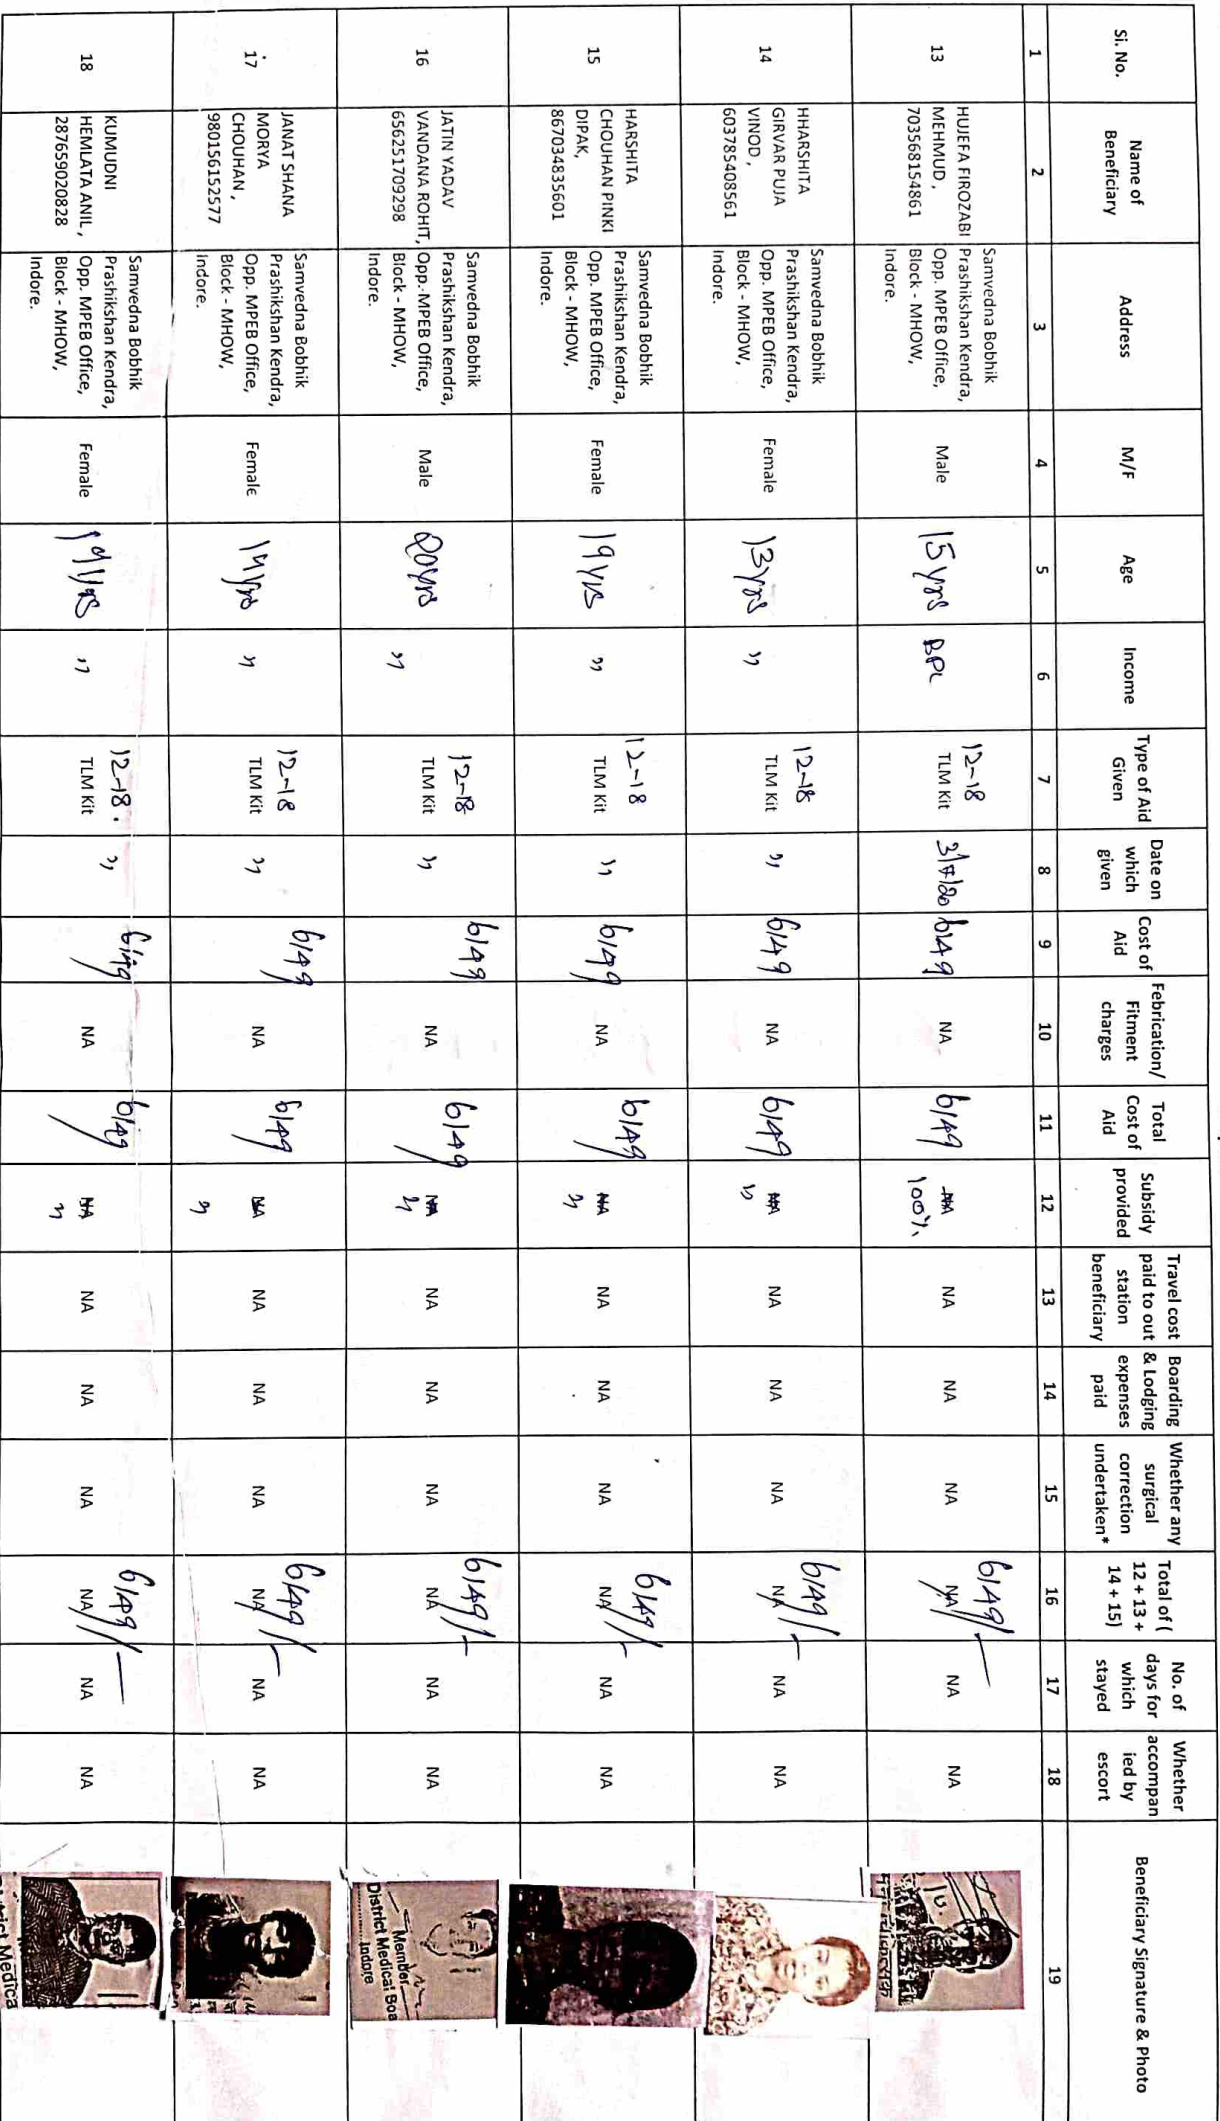 Si. No.
Name of
Beneficiary
Address
M/F
Age
Income
Type of Aid
Given
Date on
which
given
Cost of
Aid
Febrication/
Fitment
charges
Total
Cost of
Aid
Subsidy
provided
Travel cost
paid to out
station
beneficiary
Boarding
& Lodging
expenses
paid
Whether any
surgical
correction
undertaken*
Total of (
12 + 13 +
14 + 15)
No. of
days for
which
stayed
Whether
accompan
ied by
escort
Beneficiary Signature & Photo
1 2 3 4 5 6 7 8 9 10 11 12 13 14 15 16 17 18 19
13
HUJEFA FIROZABI
MEHMUD ,
703568154861
Samvedna Bobhik
Prashikshan Kendra,
Opp. MPEB Office,
Block - MHOW,
Indore.
Male
15 yrs
BPL
12-18
TLM Kit
3/7/20
6149
NA
6149
NA
100%
NA
NA
NA
6149/-
NA
NA
NA
14
HHARSHITA
GIRVAR PUJA
VINOD ,
603785408561
Samvedna Bobhik
Prashikshan Kendra,
Opp. MPEB Office,
Block - MHOW,
Indore.
Female
13yrs
"
12-18
TLM Kit
"
6149
NA
6149
NA
"
NA
NA
NA
6149/-
NA
NA
NA
15
HARSHITA
CHOUHAN PINKI
DIPAK,
867034835601
Samvedna Bobhik
Prashikshan Kendra,
Opp. MPEB Office,
Block - MHOW,
Indore.
Female
19 yrs
"
12-18
TLM Kit
"
6149
NA
6149
NA
"
NA
NA
NA
6149/-
NA
NA
NA
16
JATIN YADAV
VANDANA ROHIT,
656251709298
Samvedna Bobhik
Prashikshan Kendra,
Opp. MPEB Office,
Block - MHOW,
Indore.
Male
20yrs
"
12-18
TLM Kit
"
6149
NA
6149
NA
"
NA
NA
NA
6149/-
NA
NA
NA
Member
District Medical Boa
Indore
17
JANAT SHANA
MORYA
CHOUHAN ,
980156152577
Samvedna Bobhik
Prashikshan Kendra,
Opp. MPEB Office,
Block - MHOW,
Indore.
Female
"
12-18
TLM Kit
"
6149
NA
6149
NA
"
NA
NA
NA
6149/-
NA
NA
NA
18
KUMUDNI
HEMLATA ANIL ,
287659020828
Samvedna Bobhik
Prashikshan Kendra,
Opp. MPEB Office,
Block - MHOW,
Indore.
Female
"
12-18.
TLM Kit
"
6149
NA
6149
NA
"
NA
NA
NA
6149/-
NA
NA
NA
Medica